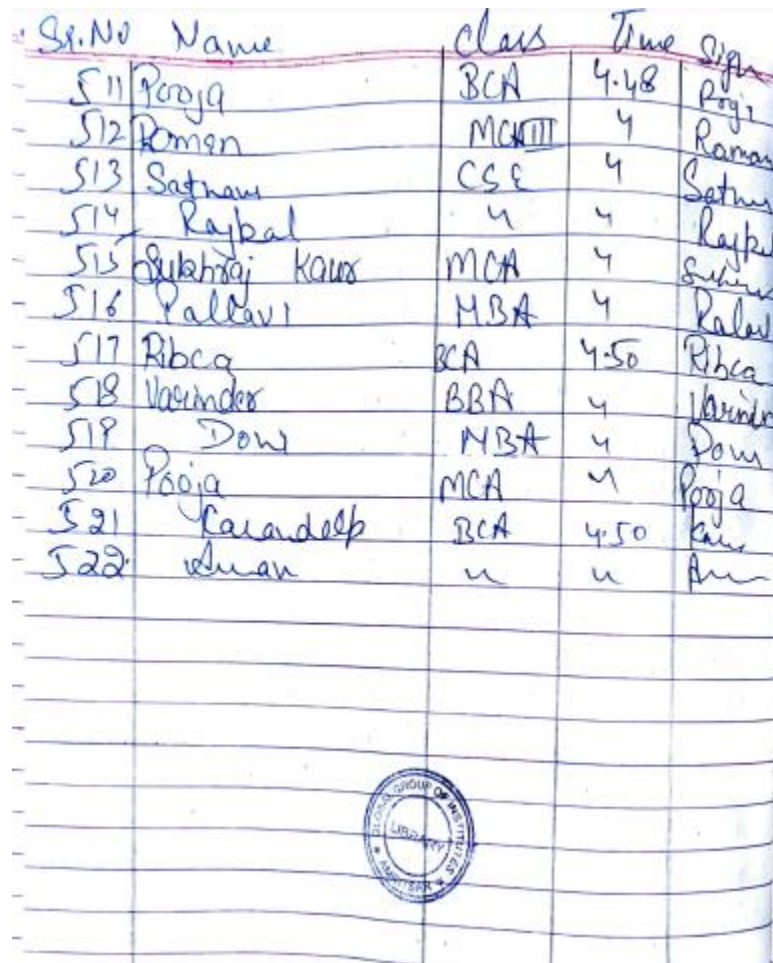 Sr.No Name Class Time Sign
511 Pooja BCA 4.48 Pooja
512 Roman MCA III 4 Raman
513 Satnam CSE 4 Satnam
514 Rajpal 4 4 Rajpal
515 Sukhraj Kaur MCA 4
516 Pallavi MBA 4
517 Ribca BCA 4.50 Ribca
518 Varinder BBA 4 Varinder
519 MBA 4
520 Pooja MCA " Pooja
521 Karandeep BCA 4.50
522. Aman " "
GLOBAL GROUP OF INSTITUTES
LIBRARY
★ AMRITSAR ★